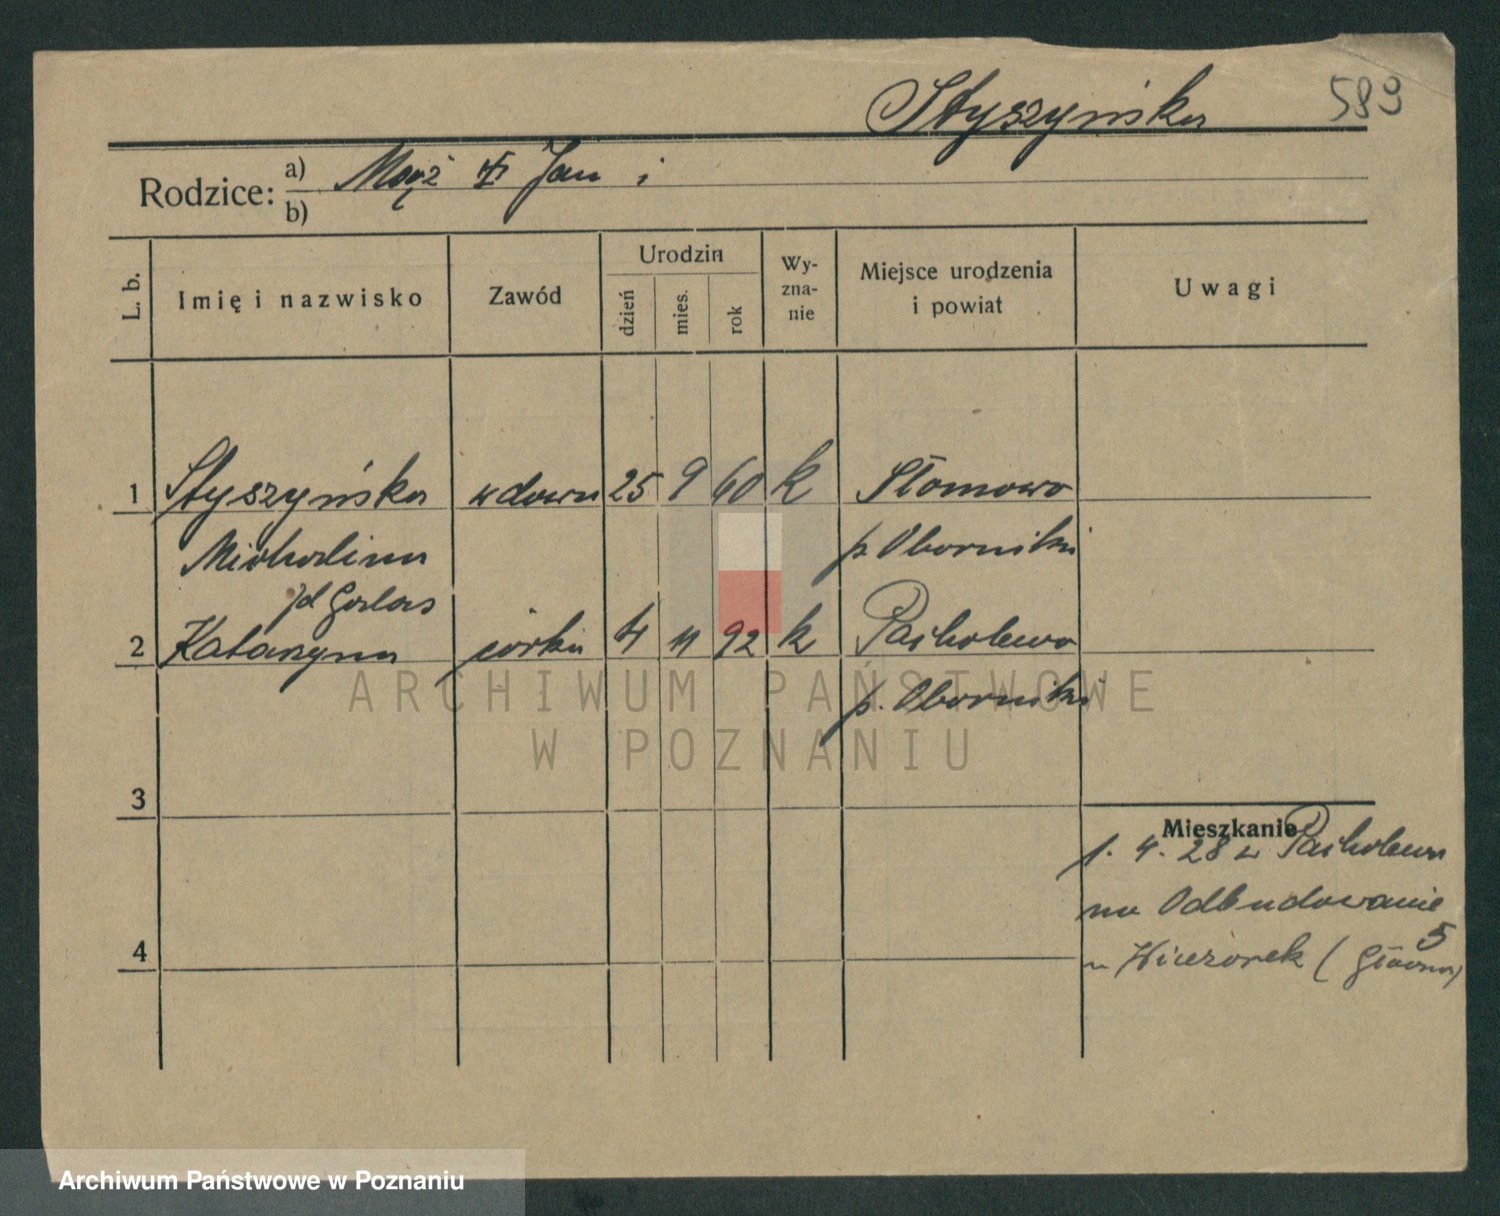 Styszyńska 589
Rodzice: a) Mąż Jan i
b)
L. b. Imię i nazwisko Zawód Urodzin dzień mies. rok Wy-zna-nie Miejsce urodzenia i powiat Uwagi
1 Styszyńska wdowa 25 9 60 k Słomowo
Michalina p. Oborniki
2 Katarzyna córka 4 11 92 k Pacholewo
p. Oborniki
ARCHIWUM PAŃSTWOWE
W POZNANIU
3
Mieszkanie
1. 4. 28 z Pacholewa
na Odbudowanie 5
u Wieczorek (Główna)
4
Archiwum Państwowe w Poznaniu